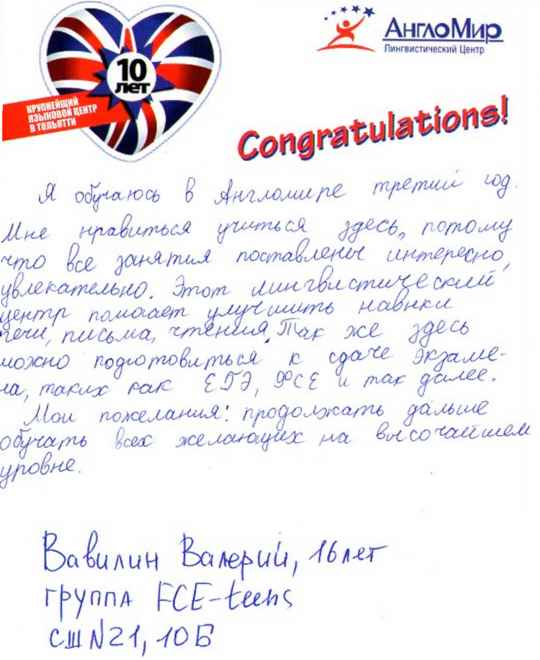 10
лет
КРУПНЕЙШИЙ
ЯЗЫКОВОЙ ЦЕНТР
В ТОЛЬЯТТИ
АнглоМир
Лингвистический Центр
Congratulations!
Я обучаюсь в Англомире третий год.
Мне нравиться учиться здесь, потому
что все занятия поставлены интересно,
увлекательно. Этот лингвистический
центр помогает улучшить навыки
речи, письма, чтения. Так же здесь
можно подготовиться к сдаче экзаме-
на, таких как ЕГЭ, FCE и так далее.
Мои пожелания: продолжать дальше
обучать всех желающих на высочайшем
уровне.
Вавилин Валерий, 16 лет
группа FCE-teens
СШ N21, 10Б